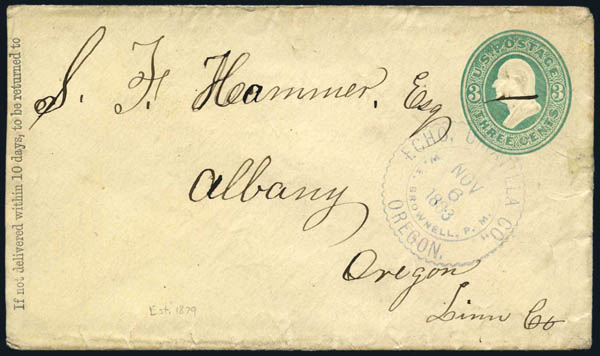 If not delivered within 10 days, to be returned to
S. F. Hammer, Esq
Albany
Oregon
Linn Co
U.S. POSTAGE
3 3
THREE CENTS
ECHO, UMATILLA CO.
OREGON.
NOV
6
1883
BROWNELL, P. M.
Est. 1879